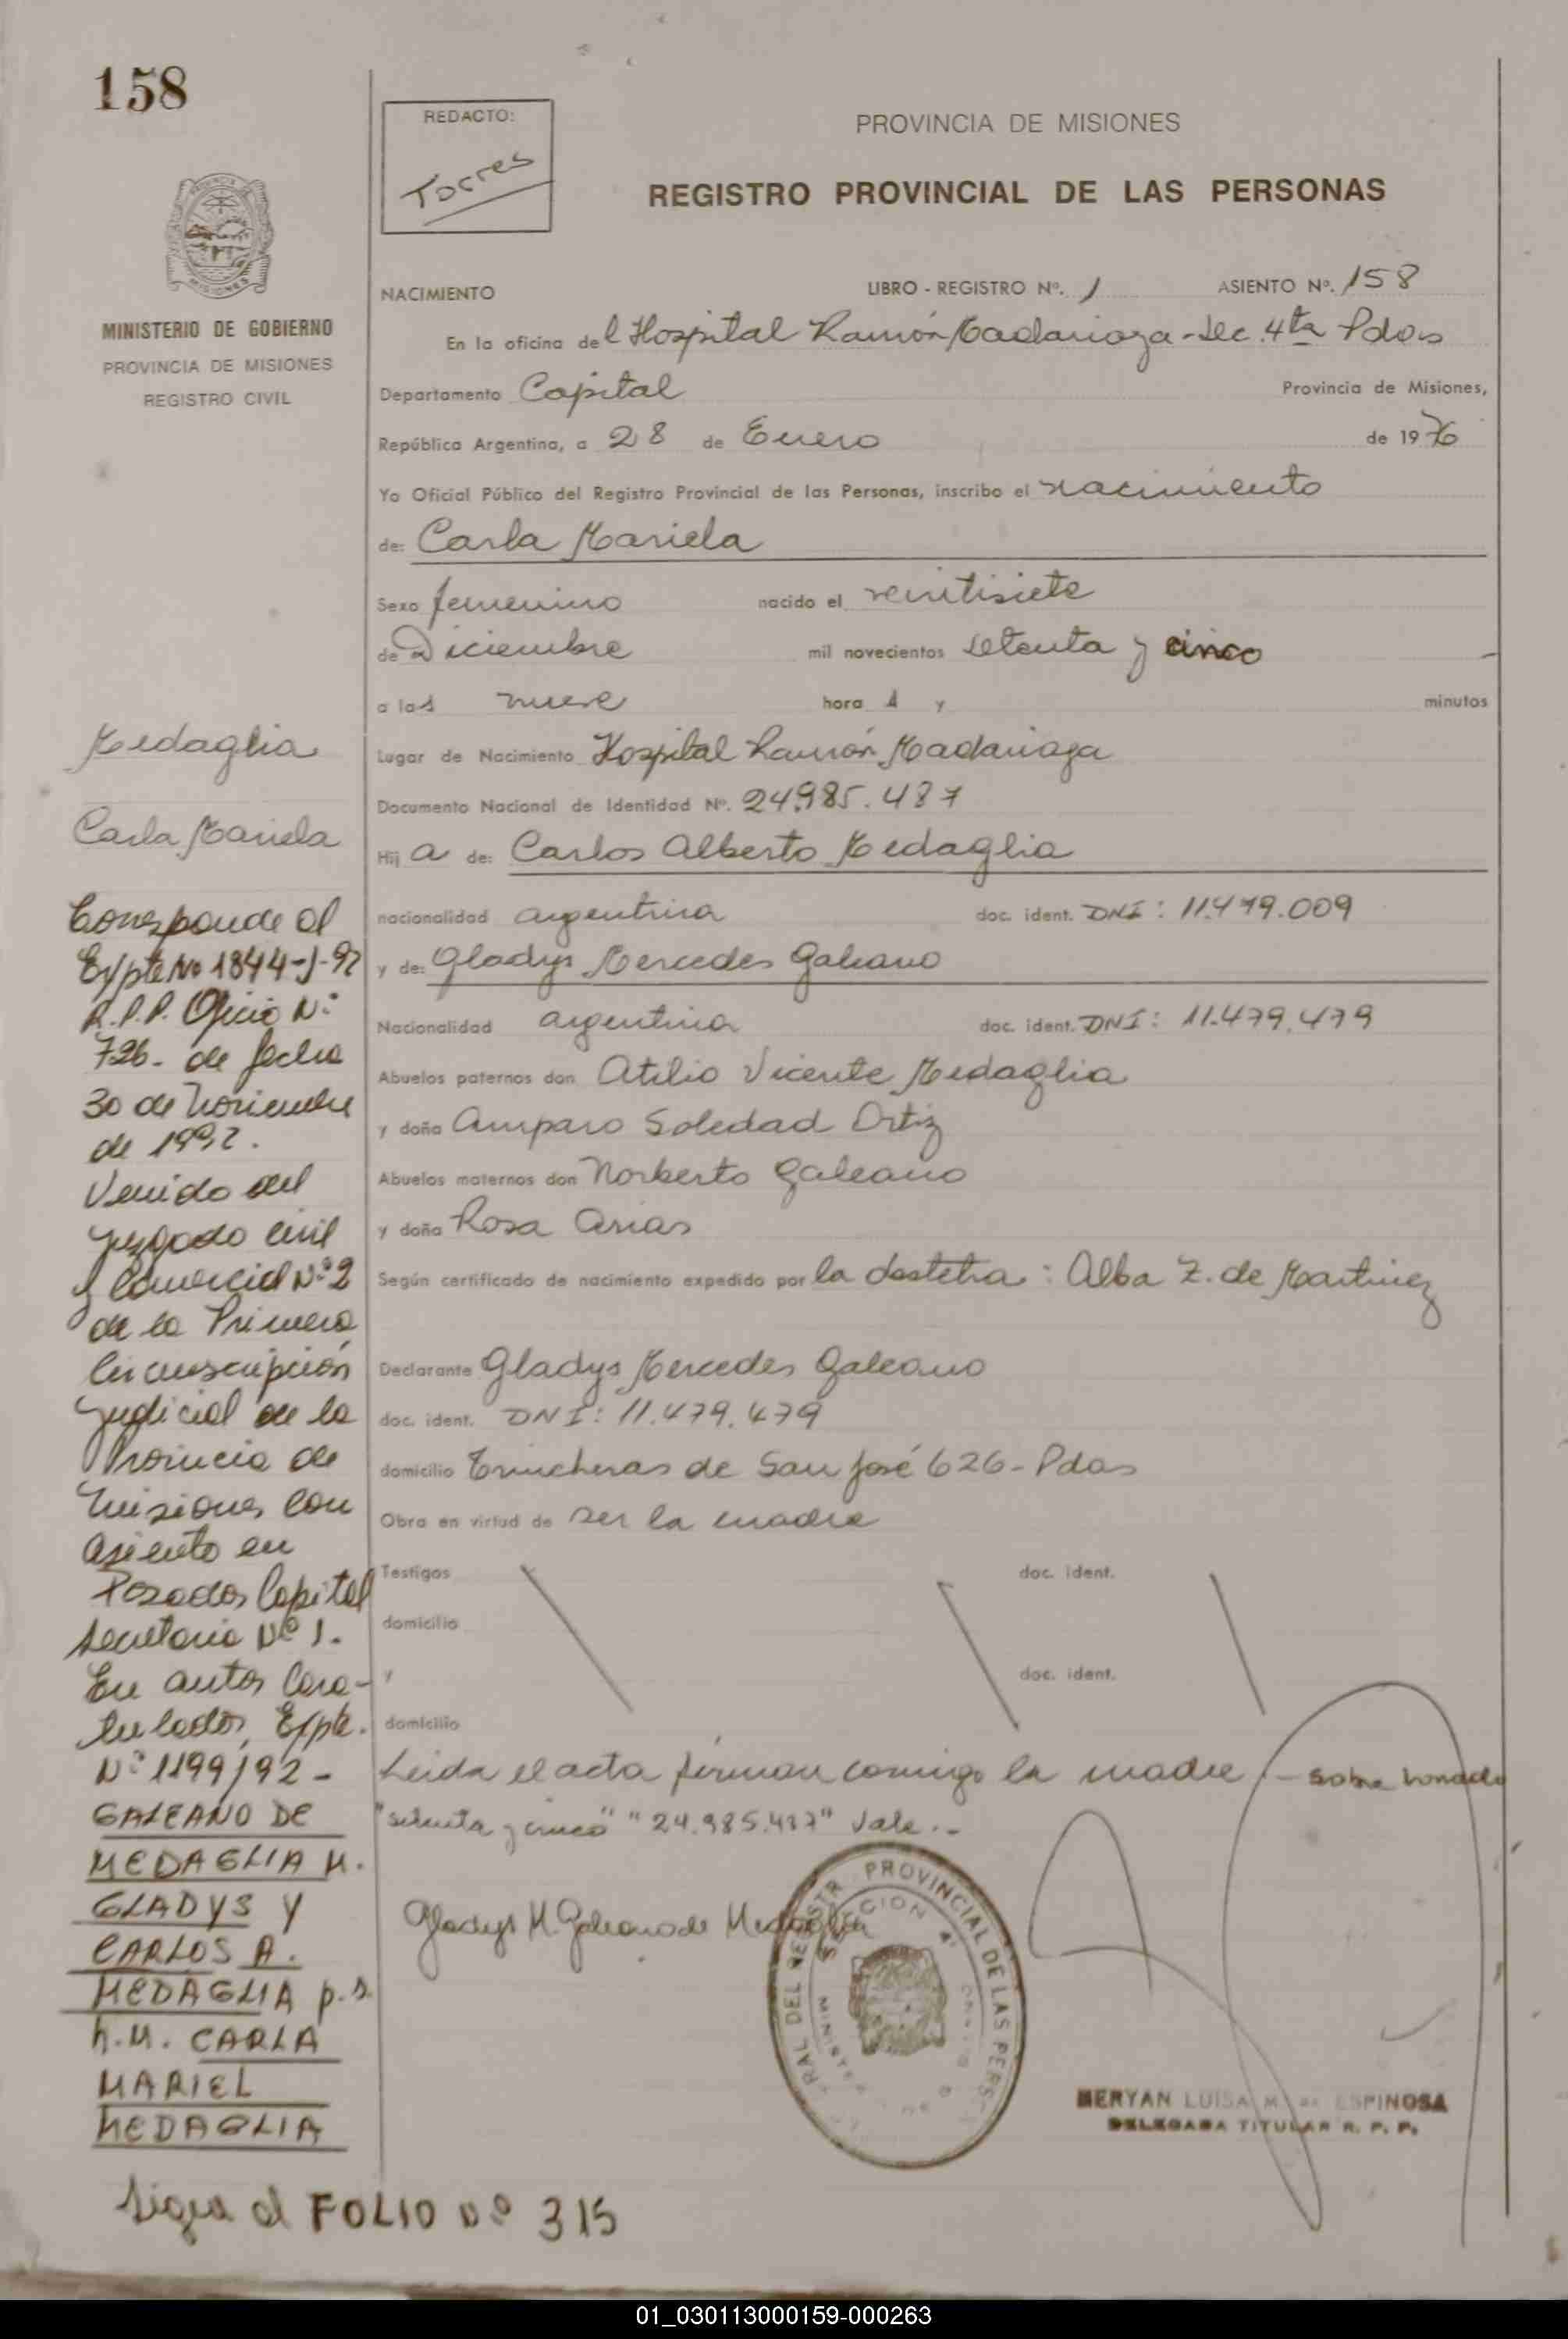 158
REDACTO:
Torres
PROVINCIA DE MISIONES
REGISTRO PROVINCIAL DE LAS PERSONAS
MINISTERIO DE GOBIERNO
PROVINCIA DE MISIONES
REGISTRO CIVIL
NACIMIENTO LIBRO - REGISTRO Nº. 1 ASIENTO Nº. 158
En la oficina del Hospital Ramón Madariaga - Sec. 4ta Pdas
Departamento Capital Provincia de Misiones,
República Argentina, a 28 de Enero de 1976
Yo Oficial Público del Registro Provincial de las Personas, inscribo el nacimiento
de: Carla Mariela
Sexo femenino nacido el veintisiete
de Diciembre mil novecientos setenta y cinco
a las nueve hora y minutos
Lugar de Nacimiento Hospital Ramón Madariaga
Documento Nacional de Identidad Nº. 24.985.487
Hij a de: Carlos Alberto Medaglia
nacionalidad argentina doc. ident. DNI: 11.479.009
y de: Gladys Mercedes Galeano
Nacionalidad argentina doc. ident. DNI: 11.479.479
Abuelos paternos don Atilio Vicente Medaglia
y doña Amparo Soledad Ortiz
Abuelos maternos don Norberto Galeano
y doña Rosa Arias
Según certificado de nacimiento expedido por la obstetra: Alba Z. de Martinez
Declarante Gladys Mercedes Galeano
doc. ident. DNI: 11.479.479
domicilio Trincheras de San José 626 - Pdas
Obra en virtud de ser la madre
Testigos doc. ident.
domicilio
y doc. ident.
domicilio
Leida el acta firman conmigo la madre - Sobre borrado
"setenta y cinco" "24.985.487" Vale.-
Gladys M. Galeano de Medaglia
PROVINCIAL DE LAS PERS
SECCION 4ª
MERYAN LUISA M. de ESPINOSA
DELEGADA TITULAR R. P. P.
Medaglia
Carla Mariela
Corresponde al
Expte No 1844-J-92
R.P.P. Oficio Nº
726. de fecha
30 de Noviembre
de 1992.
Venido del
Juzgado Civil
y Comercial Nº 2
de la Primera
Circunscripción
Judicial de la
Provincia de
Misiones con
asiento en
Posadas Capital
Secretaria Nº 1.
En autos Cara-
tulados, Expte.
Nº 1199/92 -
GALEANO DE
MEDAGLIA M.
GLADYS Y
CARLOS A.
MEDAGLIA p.s.
h.M. CARLA
MARIEL
MEDAGLIA
Sigue al FOLIO Nº 315
01_030113000159-000263